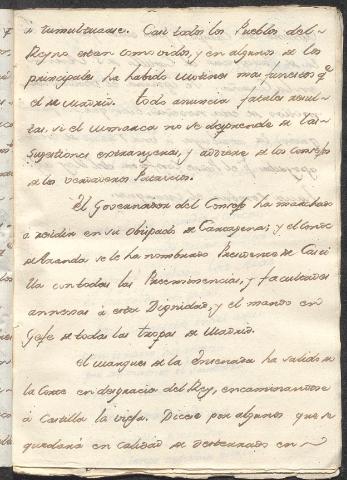 à tumultuarse. Casi todos los Pueblos del
Reyno estan comovidos, y en algunos de los
principales ha habido motines mas funestos qe.
el de Madrid. Todo anuncia fatales resul-
tas, si el Monarca no se desprende de las
sugestiones extrangeras, y adhiere a los Consejos
de los verdaderos Patricios.
El Governador del Consejo ha marchado
a residir en su Obispado de Cartagena; y el Conde
de Aranda se le ha nombrado Presidente de Casti
lla con todas las Preeminencias, y facultades
annexas à esta Dignidad, y el mando en
Gefe de todas las tropas de Madrid.
El Marques de la Ensenada ha salido de
la Corte en desgracia del Rey, encaminandose
à Castilla la vieja. Dicese por algunos que se
quedarà en calidad de desterrado en